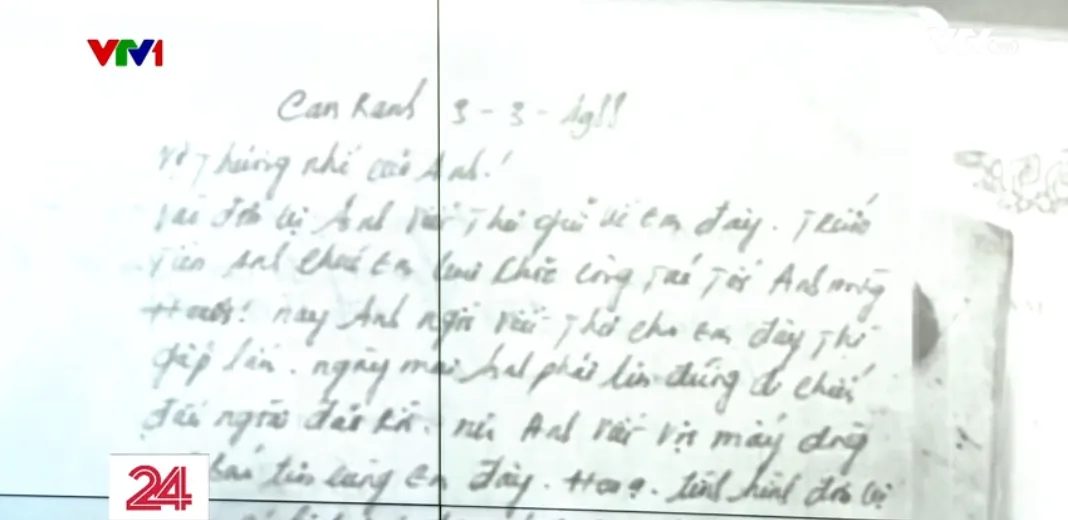 VTV1
Cam Ranh 3-3-1988
Vợ Thương nhớ của Anh!
đơn vị Anh viết Thơ gửi về Em đây. Trước
Tiên Anh chúc Em luôn khỏe công Tác Tốt Anh mừng
nay Anh ngồi viết Thơ cho Em đây Thì
gấp lắm. ngày mai Anh phải lên đường đi chiến
đấu ngoài đảo rồi. nên Anh viết vội mấy dòng
báo tin cùng Em đây. tình hình đơn vị
24